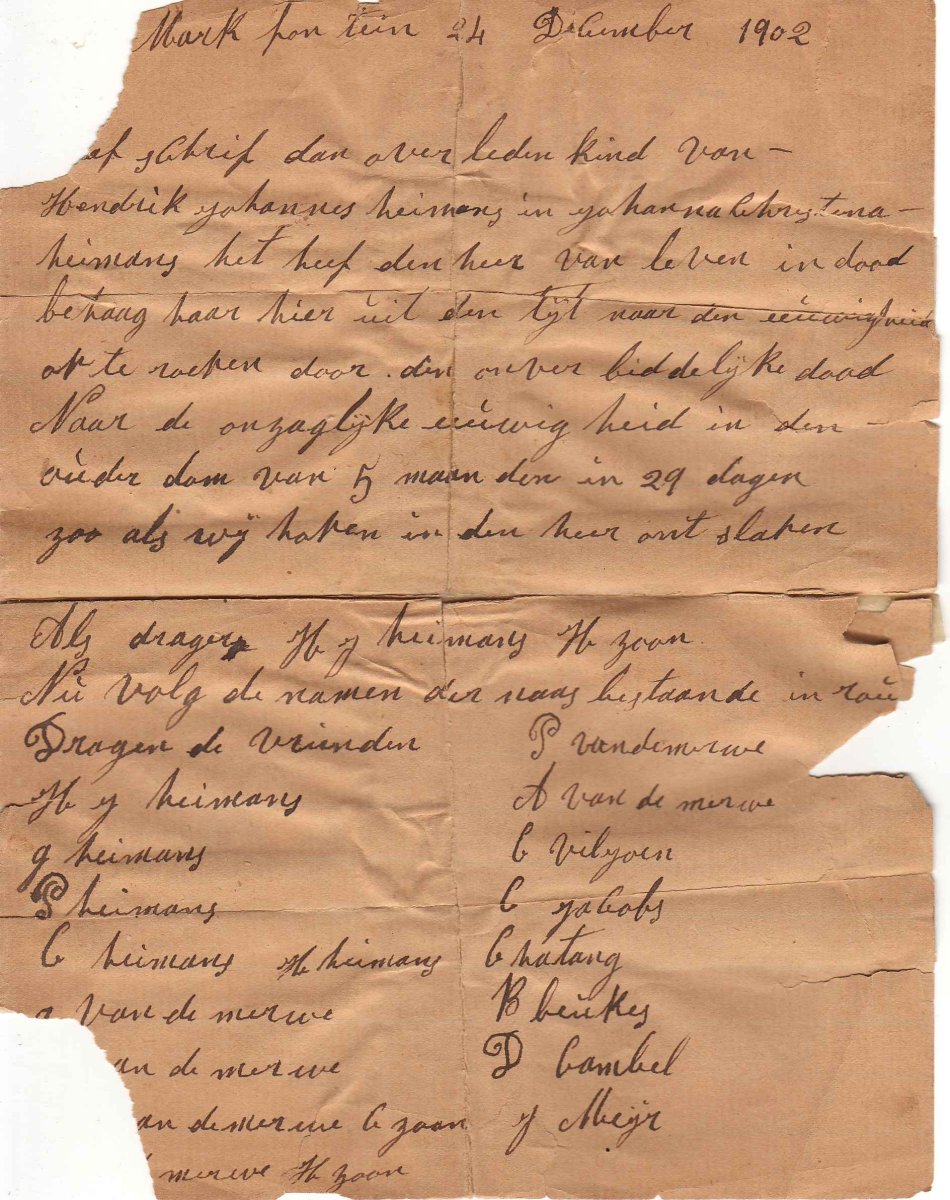 Mark fon tein 24 December 1902
ef schrif dan over leden kind van –
Hendrik yohannes heimans in yohanna Christina –
heimans het heef den heer van leven in dood
behaag haar hier uit den tyt naar den eeuwigheid
op te roepen door den onver biddelijke dood
Naar de onzaglijke eeúwig heid in den –
oúder dom van 5 maan den in 29 dagen
zoo als wij hopen in den heer ont slapen
Als drager H y heimans H zoon
Nú volg de namen der naas bestaande in roú
Dragen de vrienden
P vandemerwe
H y heimans
A van de merwe
g heimans
C vilyoen
P heimans
C yacobs
C heimans H heimans
C hatang
van de merwe
B beúkes
an de merwe
D Cambel
an demerwe C zoon
y Meijr
merwe H zoon